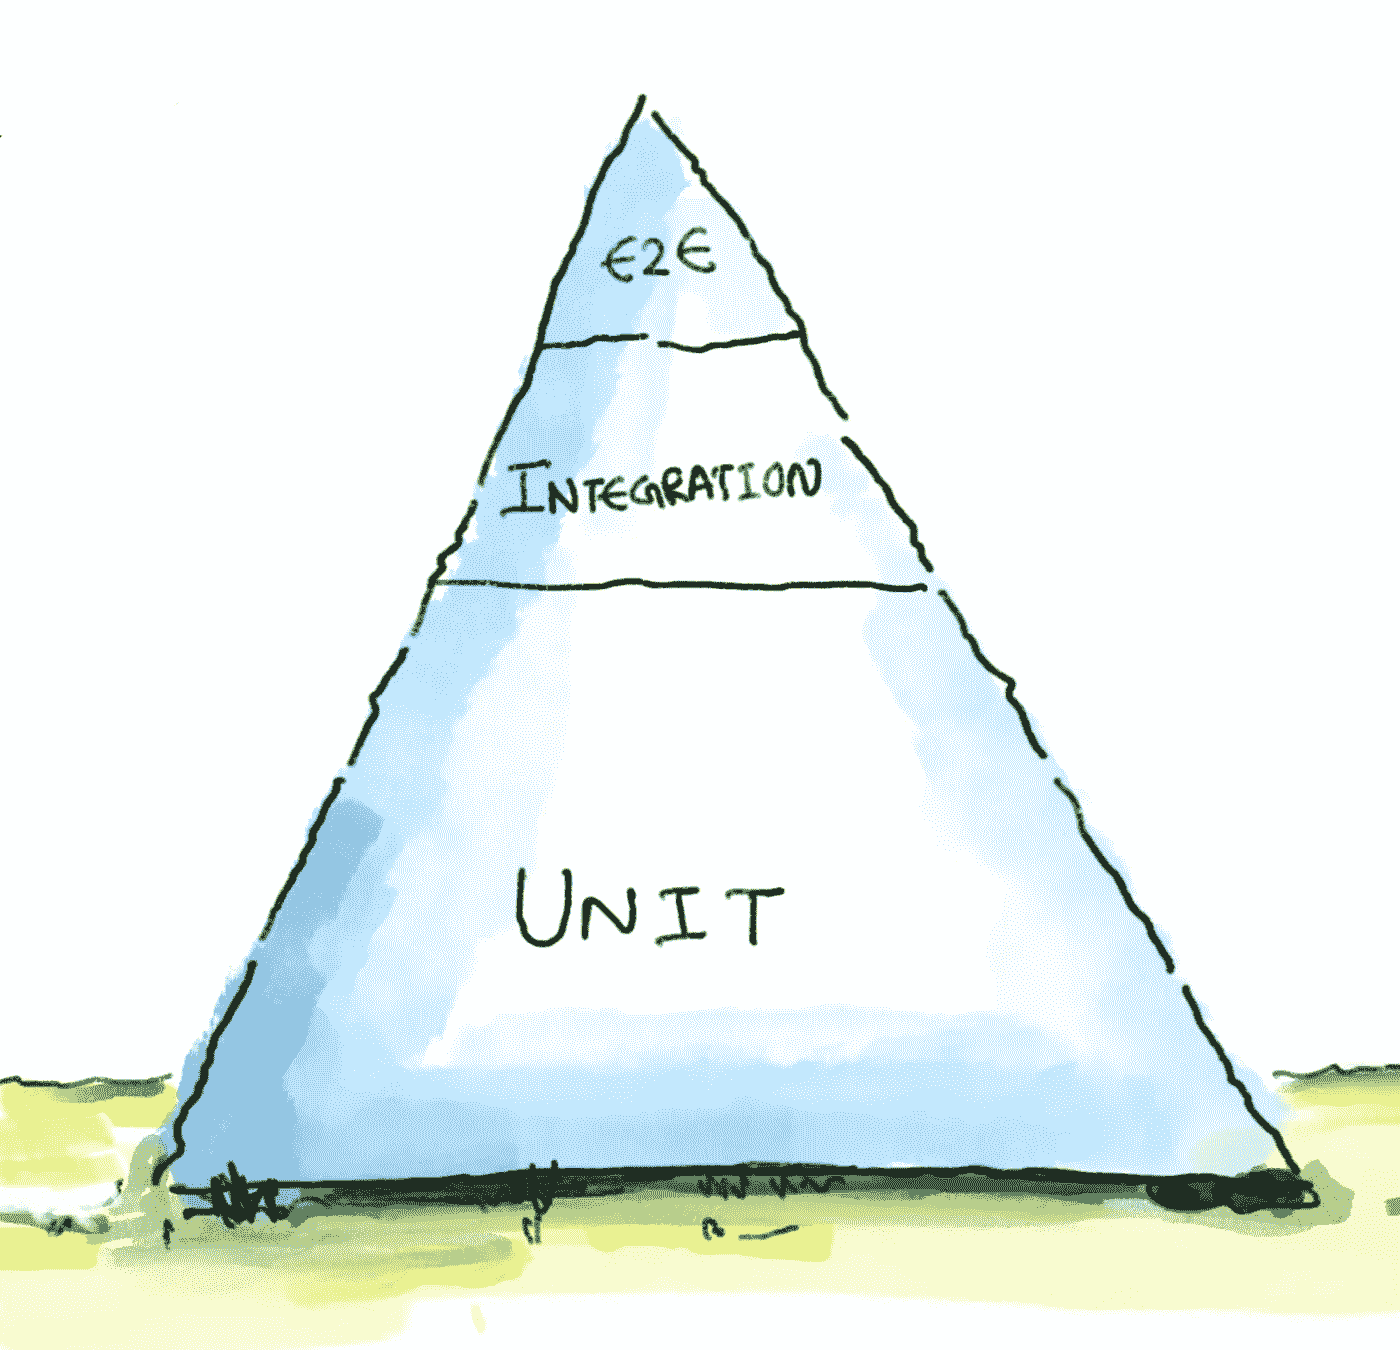 E2E
INTEGRATION
UNIT